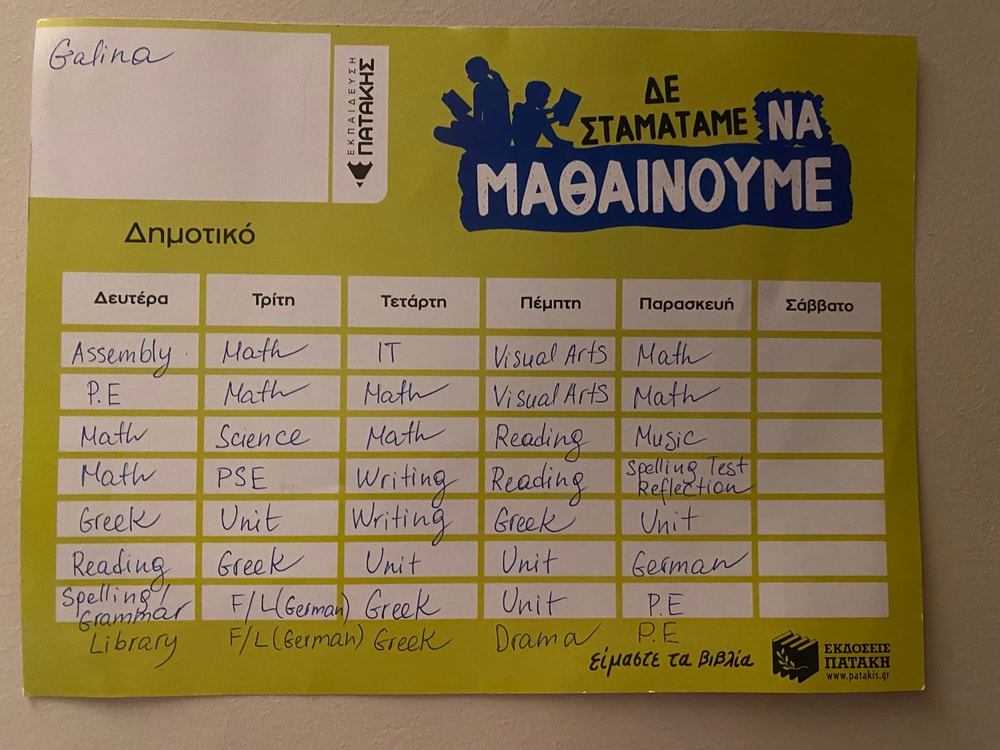 Galina
ΕΚΠΑΙΔΕΥΣΗ
ΠΑΤΑΚΗΣ
ΔΕ
ΣΤΑΜΑΤΑΜΕ ΝΑ
ΜΑΘΑΙΝΟΥΜΕ
Δημοτικό
Δευτέρα Τρίτη Τετάρτη Πέμπτη Παρασκευή Σάββατο
Assembly Math IT Visual Arts Math
P.E Math Math Visual Arts Math
Math Science Math Reading Music
Math PSE Writing Reading Spelling Test
Reflection
Greek Unit Writing Greek Unit
Reading Greek Unit Unit German
Spelling/
Grammar F/L(German) Greek Unit P.E
Library F/L(German) Greek Drama P.E
είμαστε τα βιβλία
ΕΚΔΟΣΕΙΣ
ΠΑΤΑΚΗ
www.patakis.gr